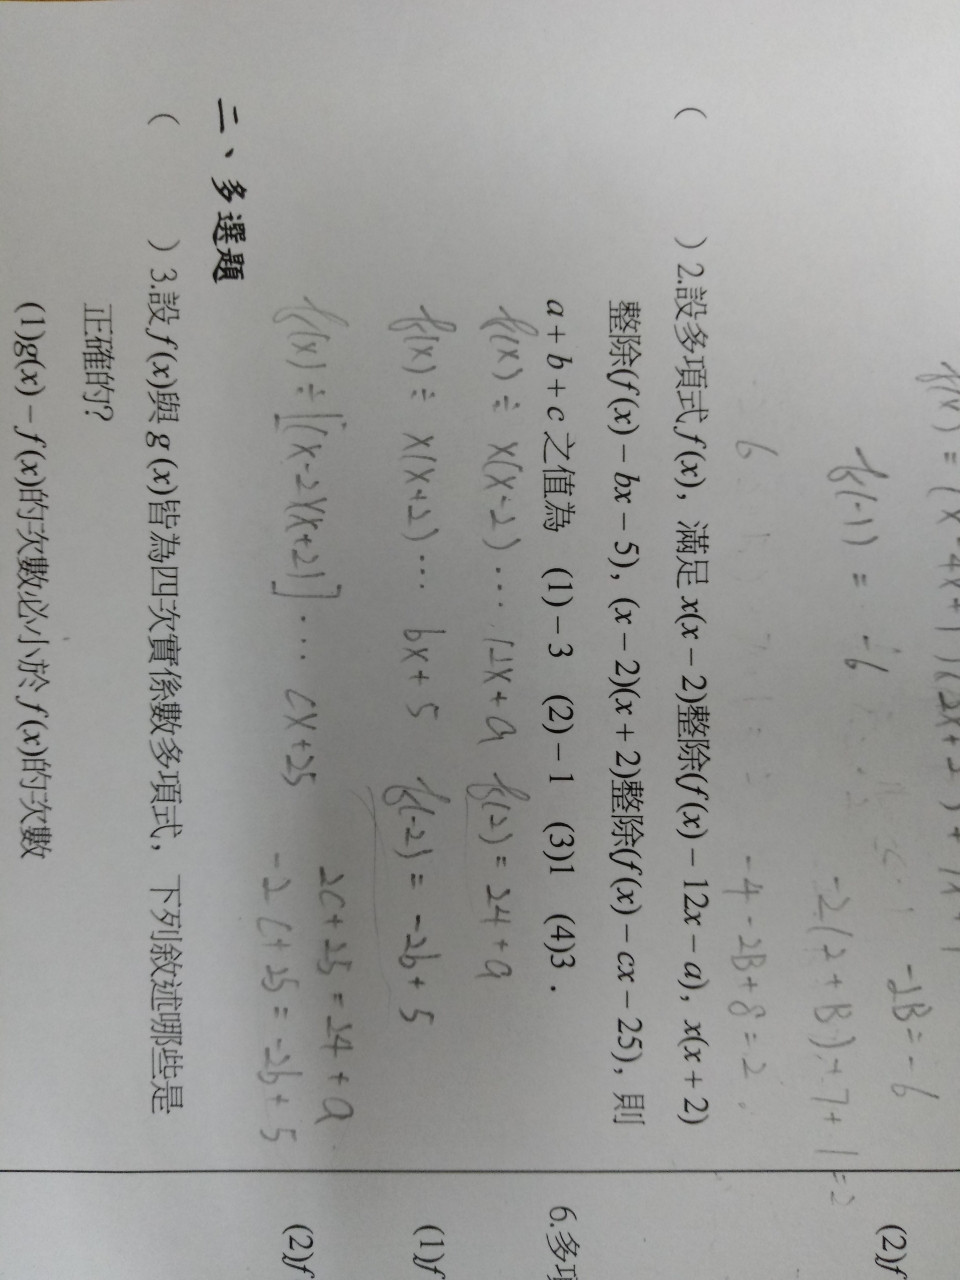 f(-1) = -6
-2B = -6
-2(2+B)+7+1=2
6
-4-2B+8=2
( ) 2.設多項式 f(x)，滿足 x(x－2)整除(f(x)－12x－a)，x(x＋2)
整除(f(x)－bx－5)，(x－2)(x＋2)整除(f(x)－cx－25)，則
a＋b＋c 之值為 (1)－3 (2)－1 (3)1 (4)3．
f(x) ÷ x(x-2) ... 12x+a f(2) = 24+a
f(x) ÷ x(x+2) ... bx+5 f(-2) = -2b+5
f(x) ÷ [(x-2)(x+2)] ... cx+25
2c+25 = 24+a
-2c+25 = -2b+5
二、多選題
( ) 3.設 f(x)與 g(x)皆為四次實係數多項式，下列敘述哪些是
正確的?
(1)g(x)－f(x)的次數必小於 f(x)的次數
(2)f
6.多
(1)f
(2)f